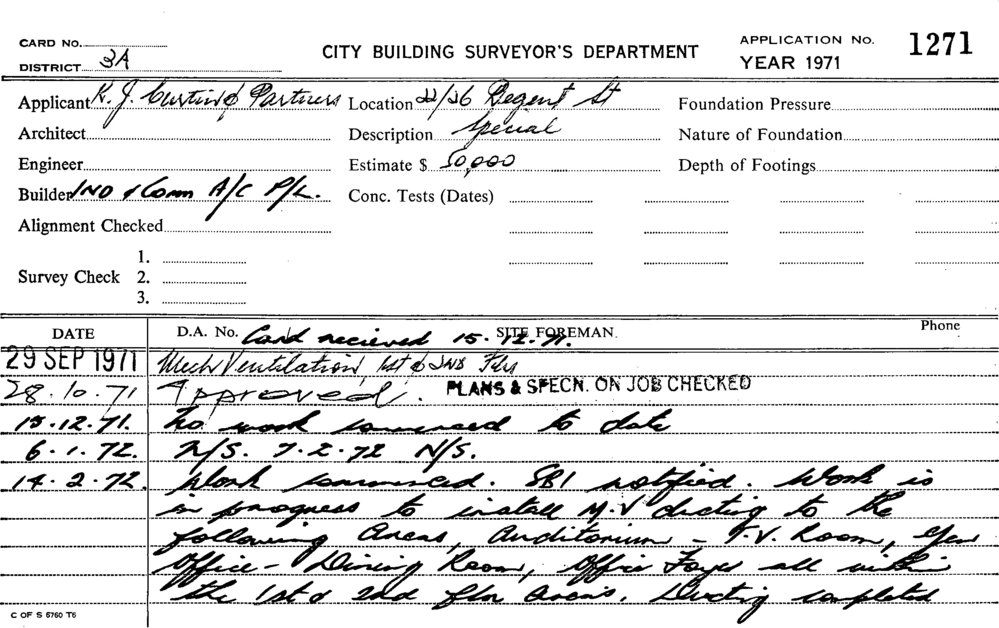 CARD No.
DISTRICT 3A
CITY BUILDING SURVEYOR'S DEPARTMENT
APPLICATION No. 1271
YEAR 1971
Applicant K. J. Curtin & Partners
Location 22/26 Regent St
Foundation Pressure
Architect
Description Special
Nature of Foundation
Engineer
Estimate $ 50,000
Depth of Footings
Builder IND & Comm A/C P/L.
Conc. Tests (Dates)
Alignment Checked
Survey Check
1.
2.
3.
DATE
D.A. No. Card recieved 15.12.71.
SITE FOREMAN.
Phone
29 SEP 1971 Mech Ventilation, 1st & 2nd Flrs
28.10.71 Approved. PLANS & SPECN. ON JOB CHECKED
15.12.71. No work commenced to date
6.1.72. N/S. 7.2.72 N/S.
14.2.72. Work commenced. SBI notified. Work is
in progress to install M.V ducting to the
following Areas, Auditorium - T.V. Room, Gen
Office - Dining Room, Office Foyer all within
the 1st & 2nd flor areas. Ducting completed
C OF S 5760 T6